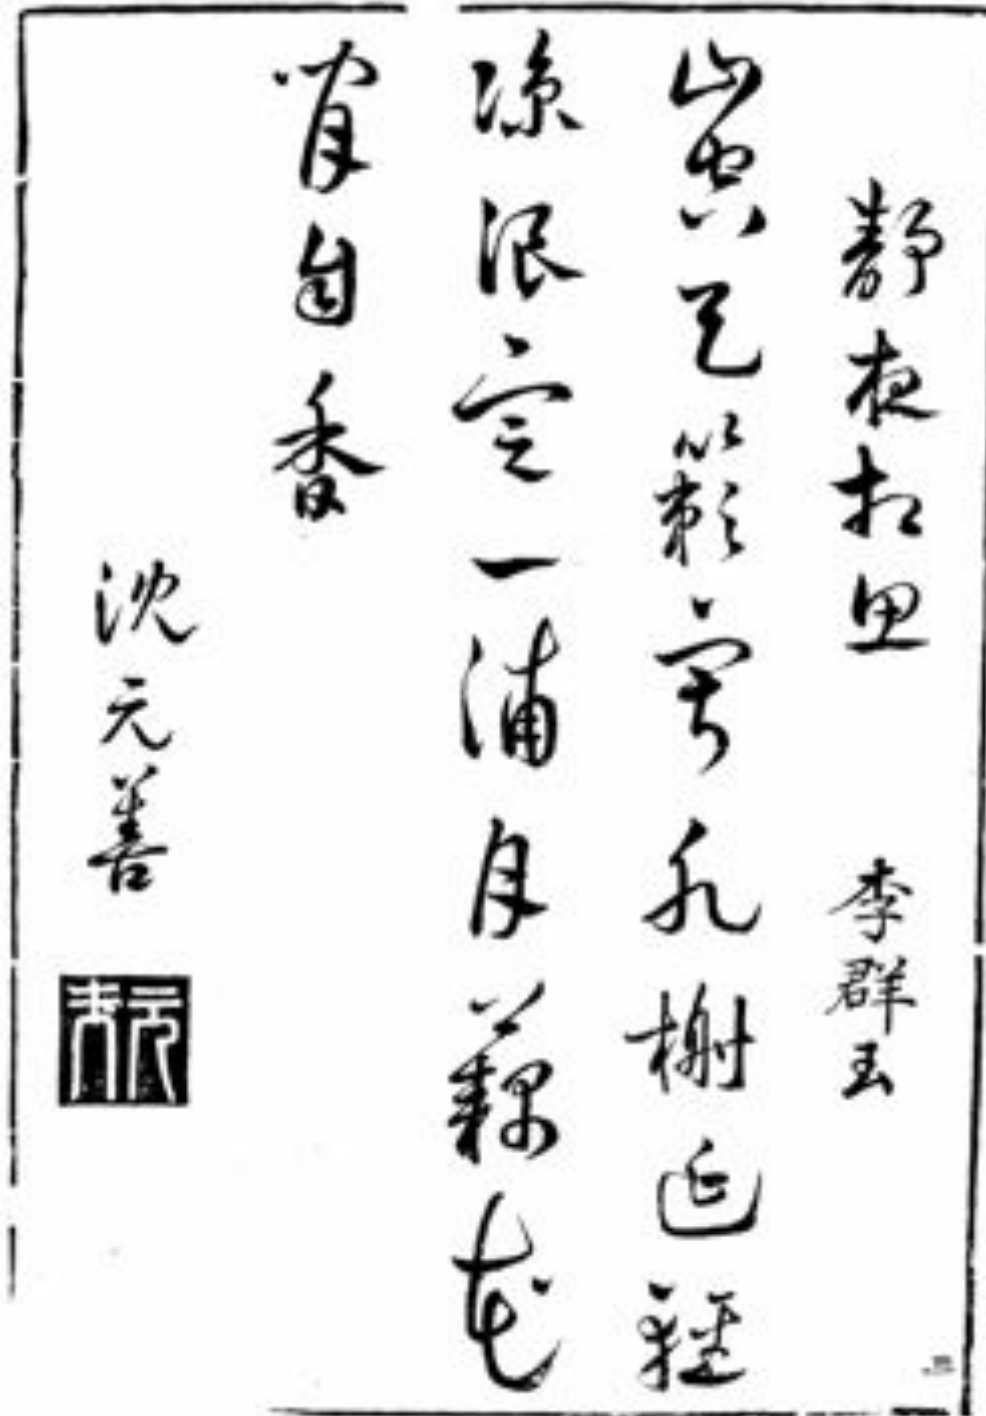 靜夜相思 李群玉
山空天籟寂水榭延輕
涼浪定一浦月藕花
閒自香
沈元善